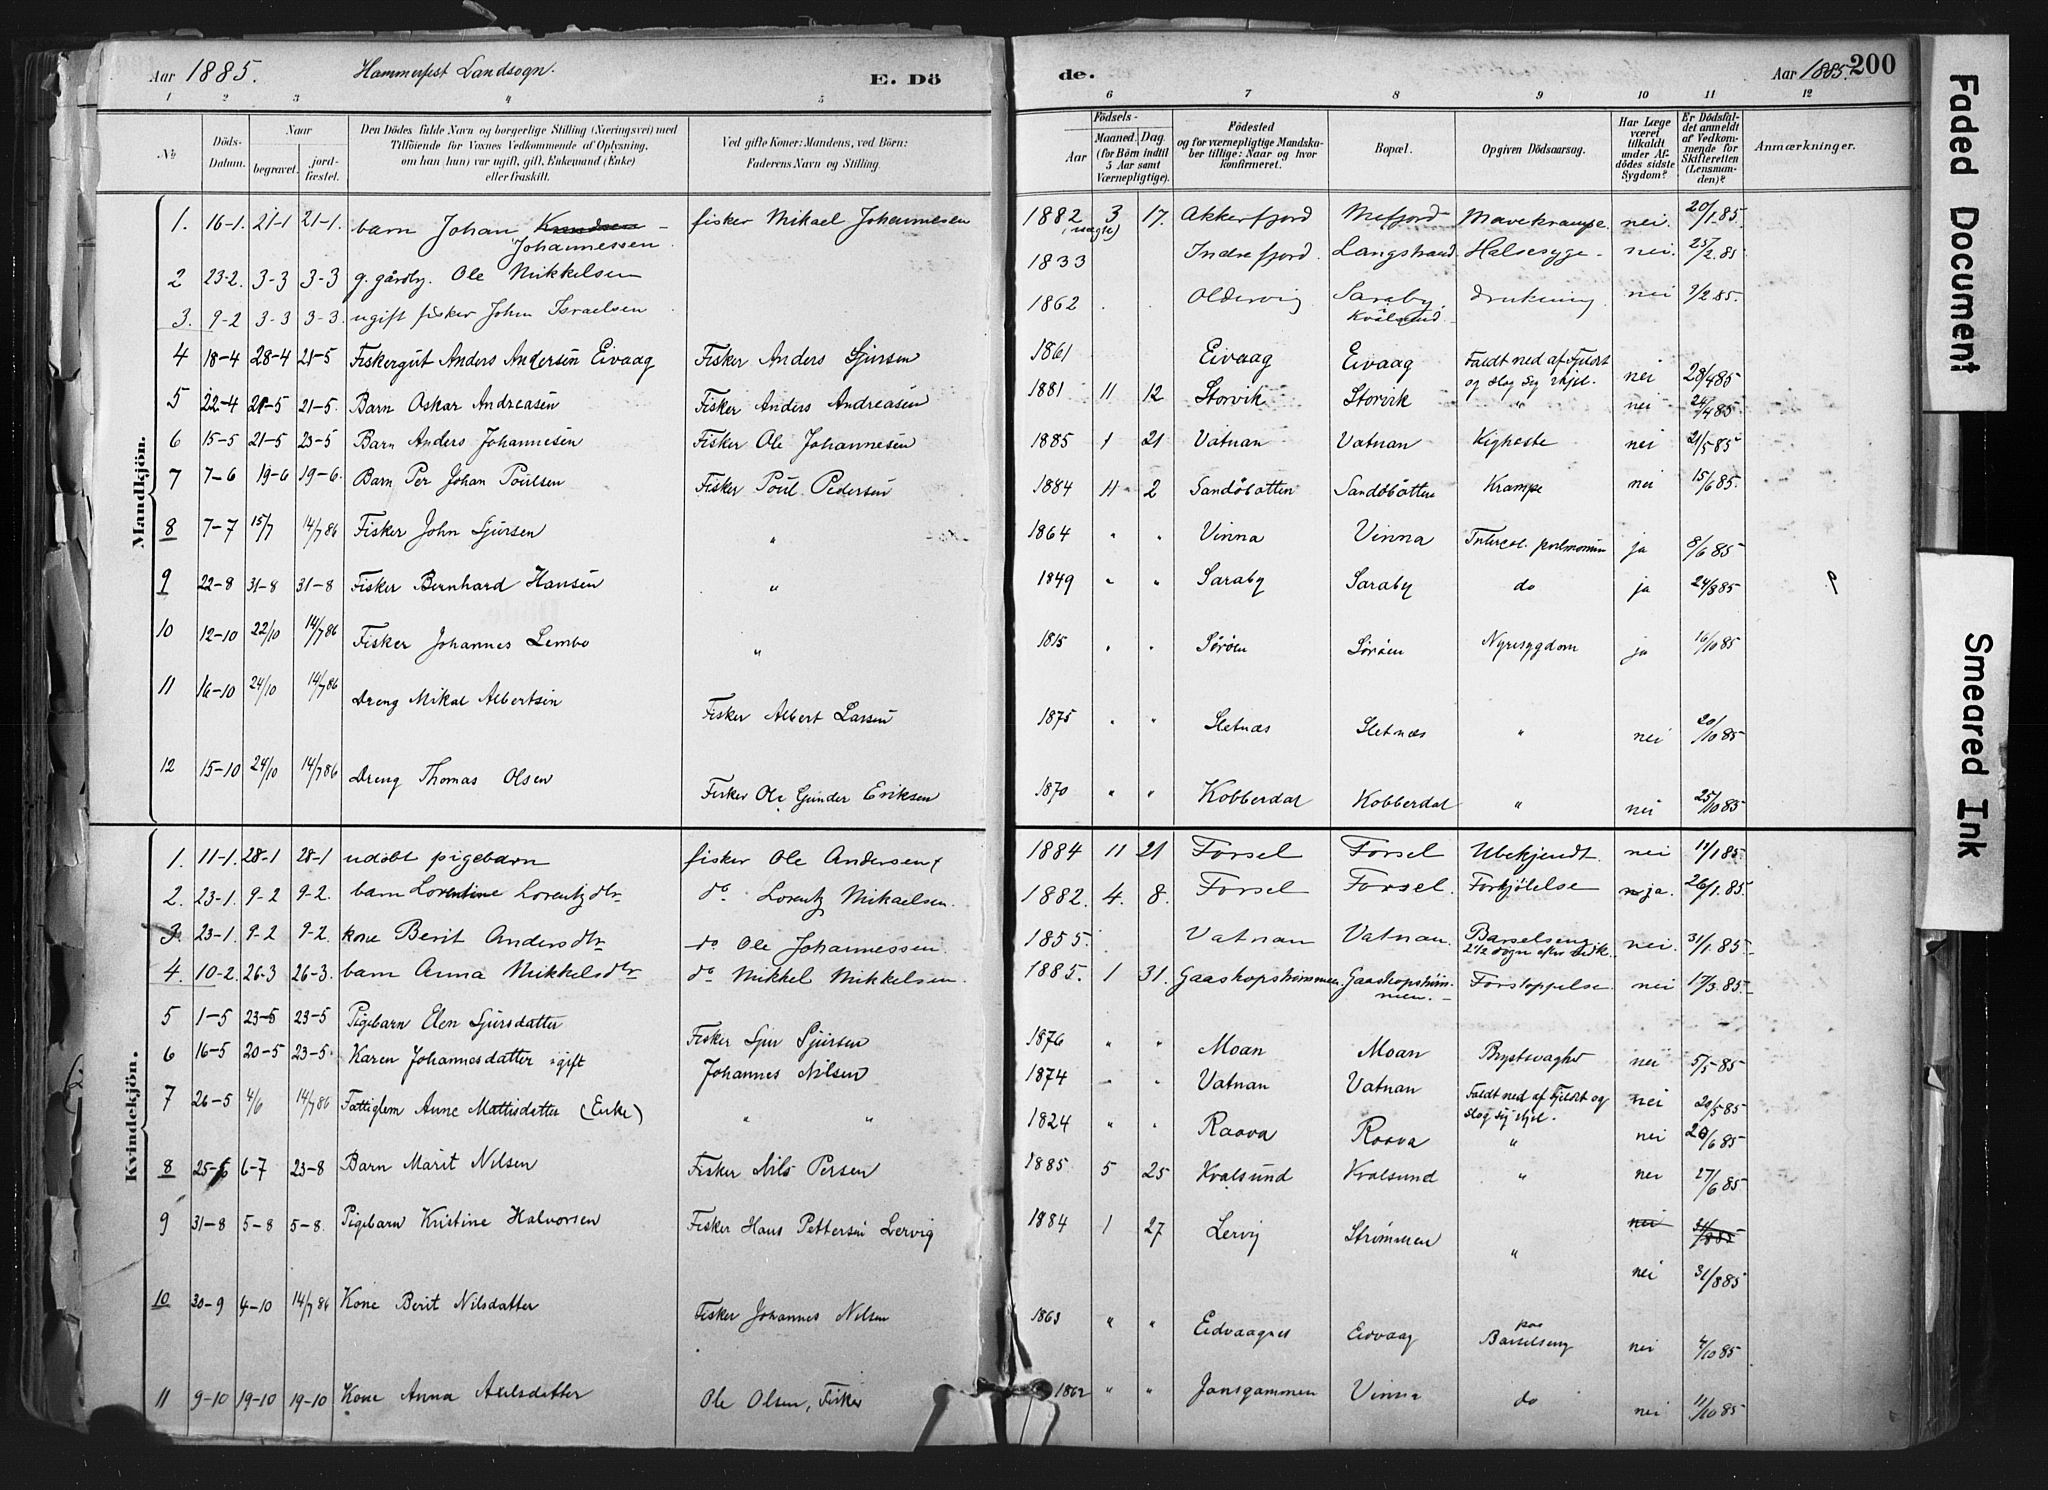 Aar 1885. Hammerfest Landsogn. E. Dö
de. Aar 1885. 200
1 2 3 4 5 6 7 8 9 10 11 12
№ Döds-Datum. Naar begravet. jord-fæstet. Den Dödes fulde Navn og borgerlige Stilling (Næringsvei) med Tilföiende for Voxnes Vedkommende af Oplysning, om han (hun) var ugift, gift, Enkemand (Enke) eller fraskilt. Ved gifte Koner: Mandens, ved Börn: Faderens Navn og Stilling. Födsels- Aar Maaned. Dag. (for Börn indtil 5 Aar samt Værnepligtige). Födested og for værnepligtige Mandska-ber tillige: Naar og hvor konfirmeret. Bopæl. Opgiven Dödsaarsag. Har Læge været tilkaldt under Af-dödes sidste Sygdom? Er Dödsfal-det anmeldt af Vedkom-mende for Skifteretten (Lensman-den)? Anmærkninger.
Mandkjön.
1. 16-1. 21-1 21-1. barn Johan Knudsen Johannessen fisker Mikael Johannesen 1882 3 17. Akkerfjord Mefjord Mavekrampe. nei. 20/1.85.
2 23-2. 3-3 3-3 g. gårdbr. Ole Mikkelsen 1833 Indrefjord. Langstrand Halsesyge nei. 25/2.85
3. 9-2 3-3 3-3. ugift fisker Johan Israelsen 1862 Oldervig Saraby, Kvalsund drukning nei 3/2.85.
4 18-4 28-4 21-5 Fiskergut Anders Andersen Eivaag Fisker Anders Sjursen 1861 Eivaag Eivaag Faldt ned af Fjeldet og slog sig ihjel. nei 28/4 85
5 22-4 21-5 21-5. Barn Oskar Andreasen Fisker Anders Andreasen 1881 11 12 Storvik Storvik " nei 24/4 85
6 15-5 21-5 23-5 Barn Anders Johannesen Fisker Ole Johannesen 1885 1 21 Vatnan Vatnan Kighoste nei 21/5 85
7 7-6 19-6 19-6. Barn Per Johan Poulsen Fisker Poul Pedersen 1884 11 2 Sandöbotten Sandöbotten Krampe nei 15/6 85.
8 7-7 15/7 14/7 86 Fisker John Sjursen " 1864 " " Vinna Vinna ja 8/6 85
9 22-8 31-8 31-8 Fisker Bernhard Hansen " 1849 " " Saraby Saraby do ja 24/8 85
10 12-10 22/10 14/7 86 Fisker Johannes Lembo " 1815 " " Sørøen Sørøen Nyresygdom ja 16/10 85
11 16-10 24/10 14/7 86 Dreng Mikal Albertsen Fisker Albert Larsen 1875 " " Sletnæs Sletnæs " nei 20/10 85
12 15-10 24/10 14/7 86 Dreng Thomas Olsen Fisker Ole Gunder Eriksen 1870 " " Kobberdal Kobberdal " nei 25/10 85
Kvindekjön.
1. 11-1. 28-1 28-1 udøbt pigebarn fisker Ole Andersen 1884 11 21 Forsøl Forsøl Ubekjendt. nei 11/1 85.
2. 23-1. 9-2 9-2. barn Lorentine Lorentzdtr do. Lorentz Mikaelsen. 1882. 4. 8. Forsøl Forsøl. Forkjølelse ja. 26/1.85.
3. 23-1. 9-2 9-2. kone Berit Andersdtr do Ole Johannessen. 1855. Vatnan Vatnan. Barselseng 2 1/2 døgn efter nei. 31/1.85.
4. 10-2. 26-3 26-3. barn Anna Mikkelsdtr do Mikkel Mikkelsen. 1885. 1 31. Gaaskopstrømmen Gaaskopstrøm-men. Forstoppelse nei 17/3.85.
5 1-5 23-5 23-5 Pigebarn Elen Sjursdatter Fisker Sjur Sjursen 1876 " " Moan Moan Brystsvaghed nei 5/5 85
6 16-5 20-5 23-5. Karen Johannesdatter ugift Johannes Nilsen 1874 " " Vatnan Vatnan Faldt ned af Fjeldet og slog sig ihjel. nei 20/5 85
7 26-5 4/6 14/7 86 Fattiglem Anne Mattisdatter (Enke) " " 1824 " " Raava Raava " nei 20/6 85
8 25-6 6-7 23-8 Barn Marit Nilsen Fisker Nils Persen 1885 5 25 Kvalsund Kvalsund " nei 27/6 85
9 31-8 5-8 5-8. Pigebarn Kristine Halvorsen Fisker Hans Pettersen Lervig 1884 1 27 Lervig Strømmen " nei 31/8 85
nei 31/8 85
10 30-9 4-10 14/7 86 Kone Berit Nilsdatter Fisker Johannes Nilsen 1863 " " Eidvaagnes Eidvaag paa Barselseng nei 4/10 85
11 9-10 19-10 19-10 Kone Anna Axelsdatter Ole Olsen, Fisker 1862 " " Jansgammen Vinna do nei 11/10 85
Faded Document
Smeared Ink